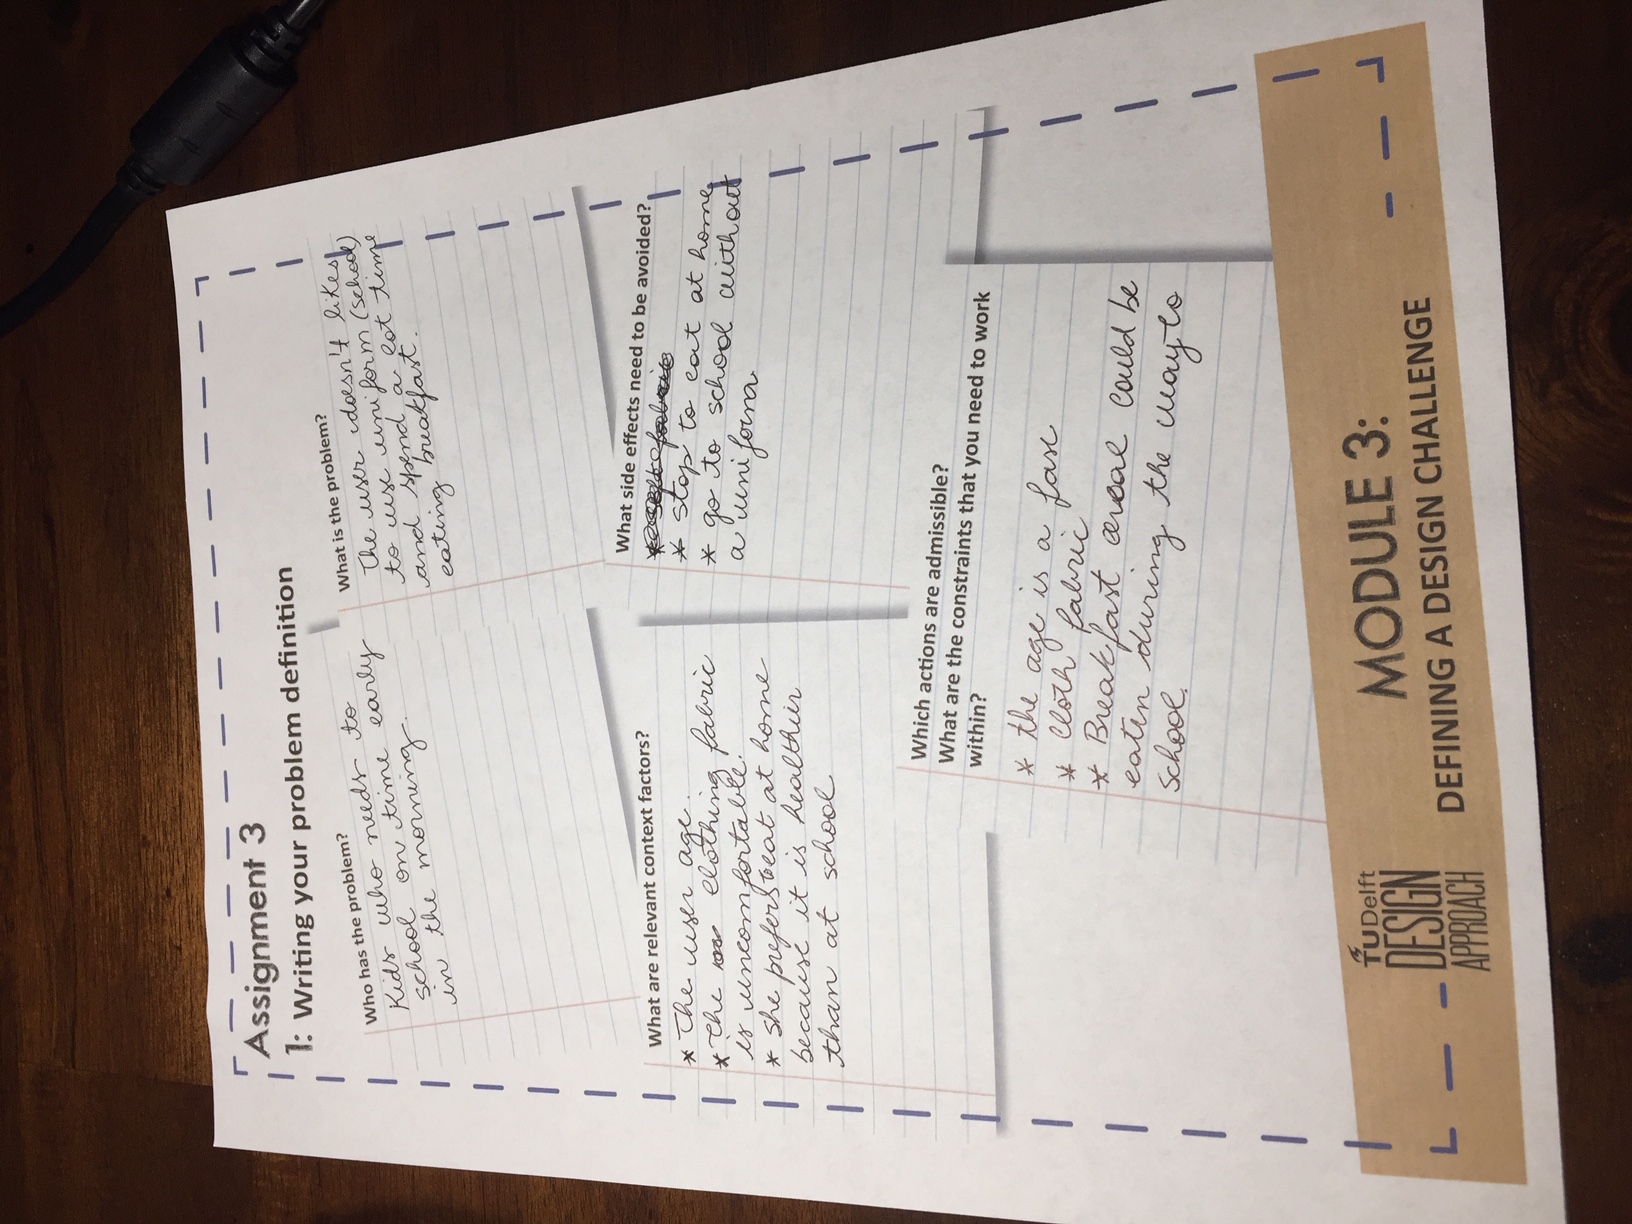 Assignment 3
1: Writing your problem definition
Who has the problem?
Kids who needs to
school on time early
in the morning.
What is the problem?
The user doesn't likes
to use uniform (school)
and spend a lot time
eating breakfast.
What are relevant context factors?
* The user age.
* The clothing fabric
is uncomfortable.
* She prefers eat at home
because it is healthier
than at school
What side effects need to be avoided?
* stop to eat at home
* go to school without
a uniform
Which actions are admissible?
What are the constraints that you need to work
within?
* the age is a fase
* Cloth fabric
* Breakfast cereal could be
eaten during the way to
school.
TU Delft
DESIGN
APPROACH
MODULE 3:
DEFINING A DESIGN CHALLENGE